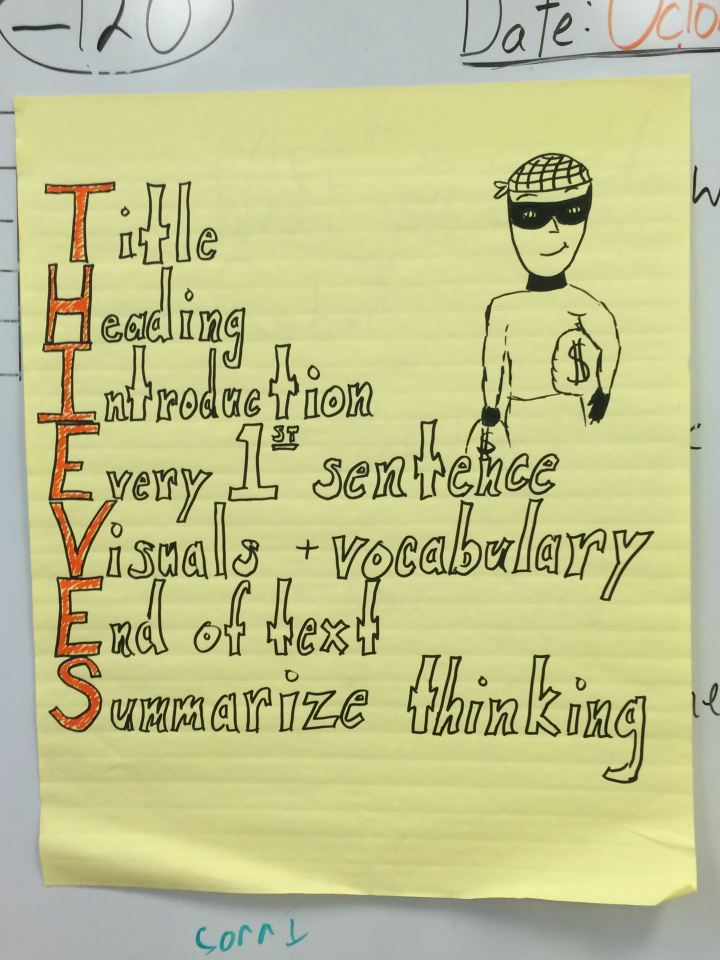 -120
Date: Octo
Title
Heading
Introduction
Every 1ST sentence
Visuals + vocabulary
End of text
Summarize thinking
$
$